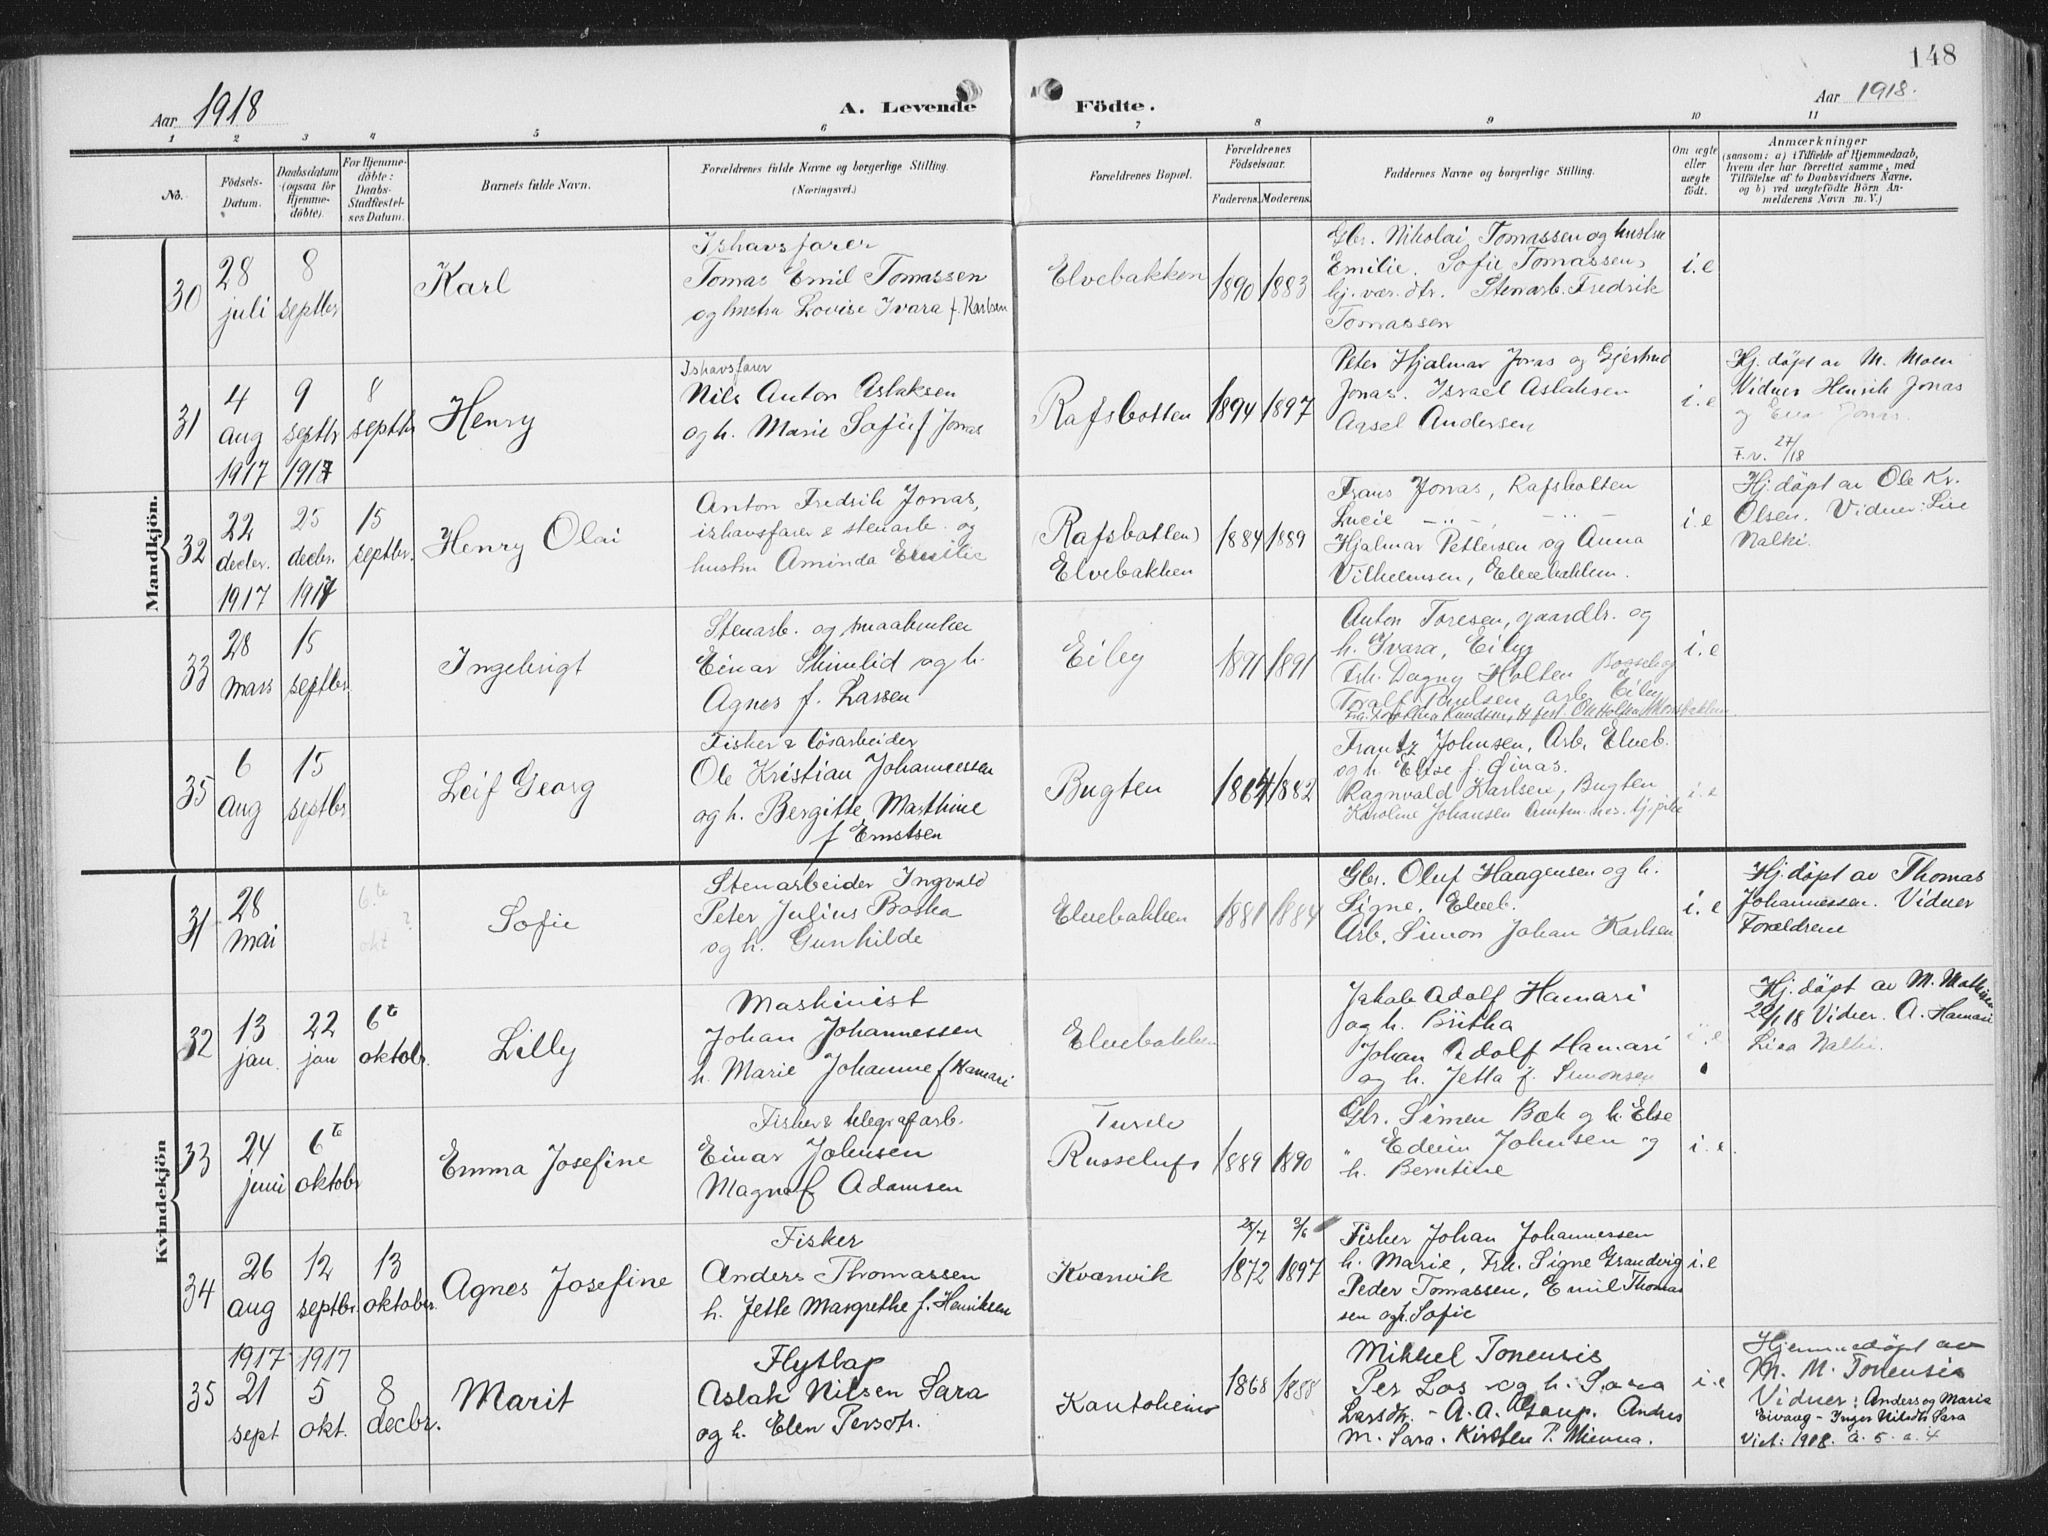 148
Aar 1918
A. Levende
Födte.
Aar 1918.
1 2 3 4 5 6 7 8 9 10 11
No.
Födsels-
Datum.
Daabsdatum
(ogsaa for
Hjemme-
døbte).
For Hjemme-
döbte:
Daabs-
Stadfæstel-
ses Datum.
Barnets fulde Navn.
Forældrenes fulde Navne og borgerlige Stilling.
(Næringsvei.)
Forældrenes Bopæl.
Forældrenes
Födselsaar.
Faderens.
Moderens.
Faddernes Navne og borgerlige Stilling.
Om ægte
eller
uægte
født.
Anmærkninger
(saasom: a) i Tilfælde af Hjemmedaab,
hvem der har forrettet samme, med
Tilföielse af to Daabsvidners Navne,
og b) ved uægtefödte Börn An-
melderens Navn m. V.)
Mandkjön.
30
28
juli
8
septbr
Karl
Ishavsfarer
Tomas Emil Tomassen
og hustru Lovise Ivara f. Karlsen
Elvebakken
1890 1883
Gbr. Nikolai Tomassen og hustru
Emilie. Sofie Tomassen,
hj. vær. dtr. Stenarb. Fredrik
Tomassen
i. e
31
4
aug
1917
9
septbr
1917
8
septbr
Henry
Ishavsfarer
Nils Anton Aslaksen
og h. Marie Sofie f Jonas
Rafsbotten
1894 1897
Peter Hjalmar Jonas og Gjertrud
Jonas. Israel Aslaksen
Aasel Andersen
i. e
Hj. døpt av M. Moen
Vidner Henrik Jonas
og Eva Jonas.
F. v. 27/18
32
22
decbr.
1917
25
decbr.
1917
15
septbr.
Henry Olai
Anton Fredrik Jonas,
ishavsfarer & stenarb. og
hustru Aminda Emilie
(Rafsbotten)
Elvebakken
1884 1889
Frans Jonas, Rafsbotten
Lucie -"- , -"-
Hjalmar Pettersen og Anna
Vilhelmsen, Elvebakken.
i. e
Hj. døpt av Ole Kr.
Olsen. Vidner: Lise
Nalki.
33
28
mars
15
septbr.
Ingebrigt
Stenarb. og smaabruker
Einar Strimlid og h.
Agnes f. Larsen
Eiby
1891 1891
Anton Toresen, gaardbr. og
h. Ivara, Eiby
Frk. Dagny Holten Bossekop
Toralf Paulsen arb. Eiby
i. e
35
6
aug
15
septbr
Leif Georg
Fisker & løsarbeider
Ole Kristian Johannessen
og h. Bergitte Marthine
f Ernstsen
Bugten
1864 1882
Frantz Johnsen, Arb. Elveb.
og h. Else f. Øinas.
Ragnvald Karlsen, Bugten
Karoline Johansen
i. e
Kvindekjön
31
28
mai
6.te
okt ?
Sofie
Stenarbeider Ingvald
Peter Julius Boska
og h. Gunhilde
Elvebakken
1881 1884
Gbr. Oluf Haagensen og h.
Signe, Elveb.
Arb. Simon Johan Karlsen
i. e
Hj. døpt av Thomas
Johannessen. Vidner
Forældrene
32
13
jan.
22
jan
6te
oktobr.
Lilly
Maskinist
Johan Johannessen
h. Marie Johanne f Hamari
Elvebakken
Jakob Adolf Hamari
og h. Britha
Johan Adolf Hamari
og h. Jetta f. Simonsen
i. e
Hj. døpt av M. Mathisen
20/1 18 Vidner. A. Hamari
Lisa Nalki.
33
24
juni
6te
oktobr
Emma Josefine
Fisker & telegrafarb.
Einar Johnsen
Magna f Adamsen
Russeluft
1889 1890
Gbr. Simen Bæk og h. Else
" Edvin Johnsen og
h. Berntine
i. e.
34
26
aug
12
septbr.
13
oktober.
Agnes Josefine
Fisker
Anders Thomassen
h. Jette Margrethe f. Henriksen
Kvænvik
25/7 3/6
1872 1897
Fisker Johan Johannessen
h. Marie, Frk. Signe Grandvig
Peder Tomassen, Emil Thomas
sen og h. Sofie
i. e
35
1917
21
sept
1917
5
okt.
8
decbr.
Marit
Flytlap
Aslak Nilsen Sara
og h. Elen Persdtr.
Kautokeino
1868 1888
Mikkel Tonensis
Per Los og h. Sara
Larsdtr. - A. A. Gaup. Andres
M. Sara. Kirsten P. Mienna.
i. e
Hjemmedøpt av
M. M. Tonensis
Vidner: Anders og Maria
Eivaag - Inger Nilsdtr Sara